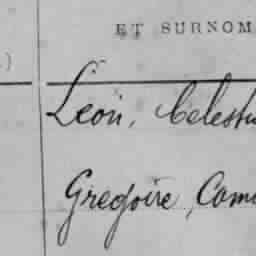 ET SURNOM
)
Léon, Celestin
Gregoire, Cami